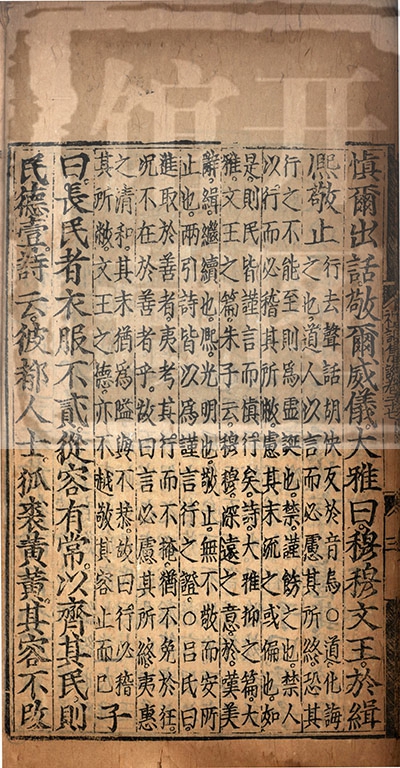 愼爾出話敬爾威儀大雅曰穆穆文王於緝
熙敬止
行去聲話胡快反於音烏○道化誨
之也道人以言而必慮其所終恐其
行之不能至則爲虛誕也禁謹飭之也禁人
以行而必稽其所敝慮其末流之或偏也如
是則民皆謹言而愼行矣詩大雅抑之篇大
雅文王之篇朱子云穆穆深遠之意於嘆美
辭緝繼續也熙光明也敬止無不敬而安所
止也兩引詩皆以爲謹言行之證○呂氏曰
進取於善者夷考其行而不掩猶不免於狂
况不在於善者乎故曰言必慮其所終夷惠
之清和其末猶爲隘與不恭故曰行必稽
其所敝文王之德亦不越敬其容止而已
子
曰長民者衣服不貳從容有常以齊其民則
民德壹詩云彼都人士狐裘黃黃其容不改